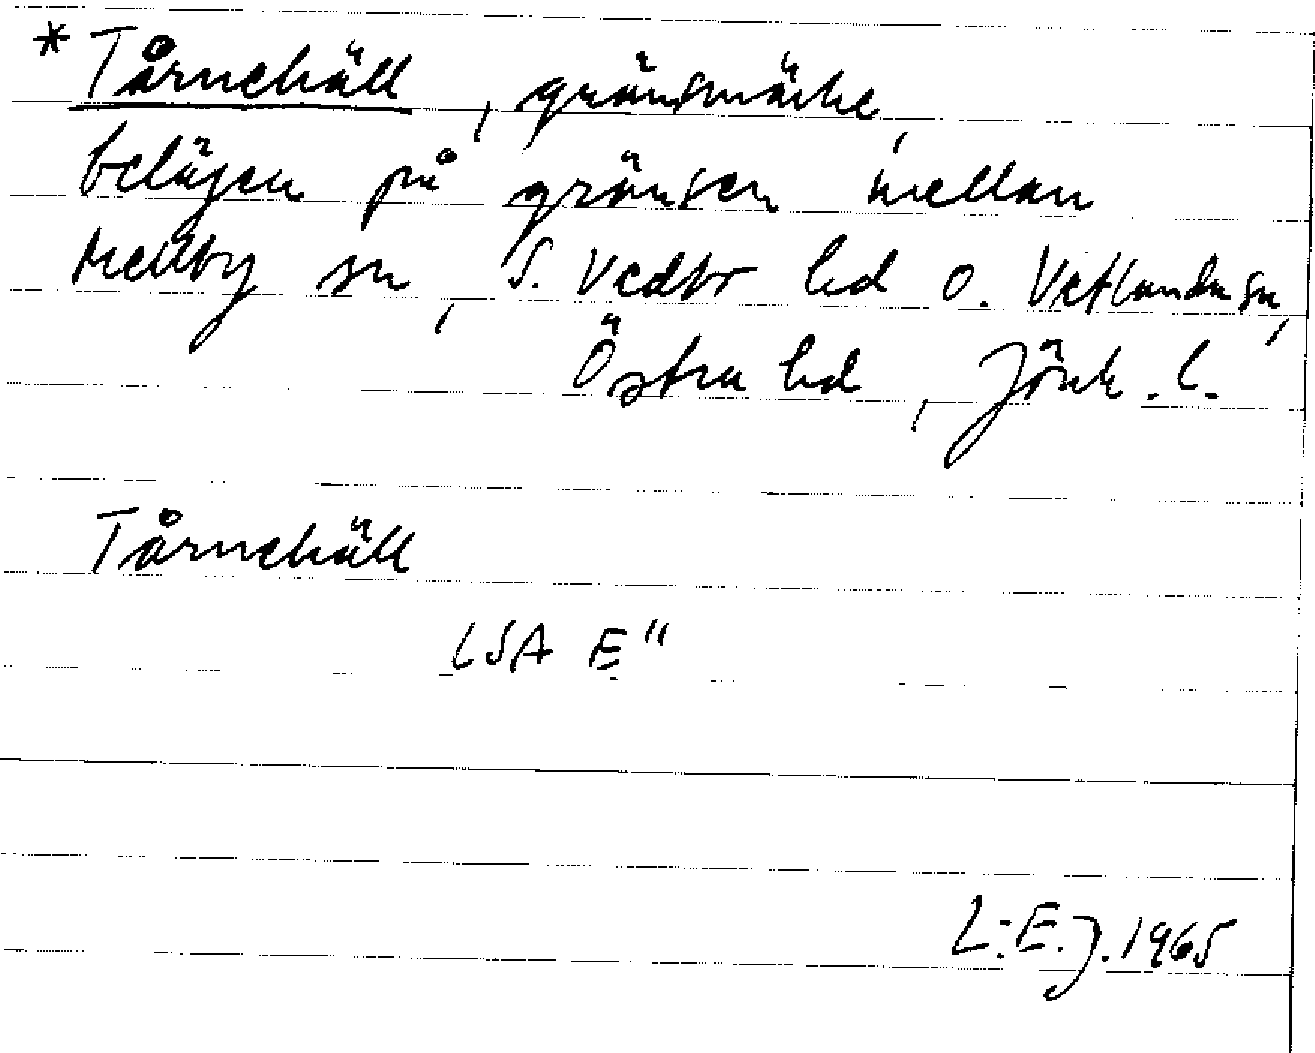 * Tårnehäll, gränsmärke,
belägen på gränsen mellan
Mellby sn, S. Vedbo hd o. Vetlanda sn,
Östra hd, Jönk. l.
Tårnehäll
LSA E"
L-E. J. 1965